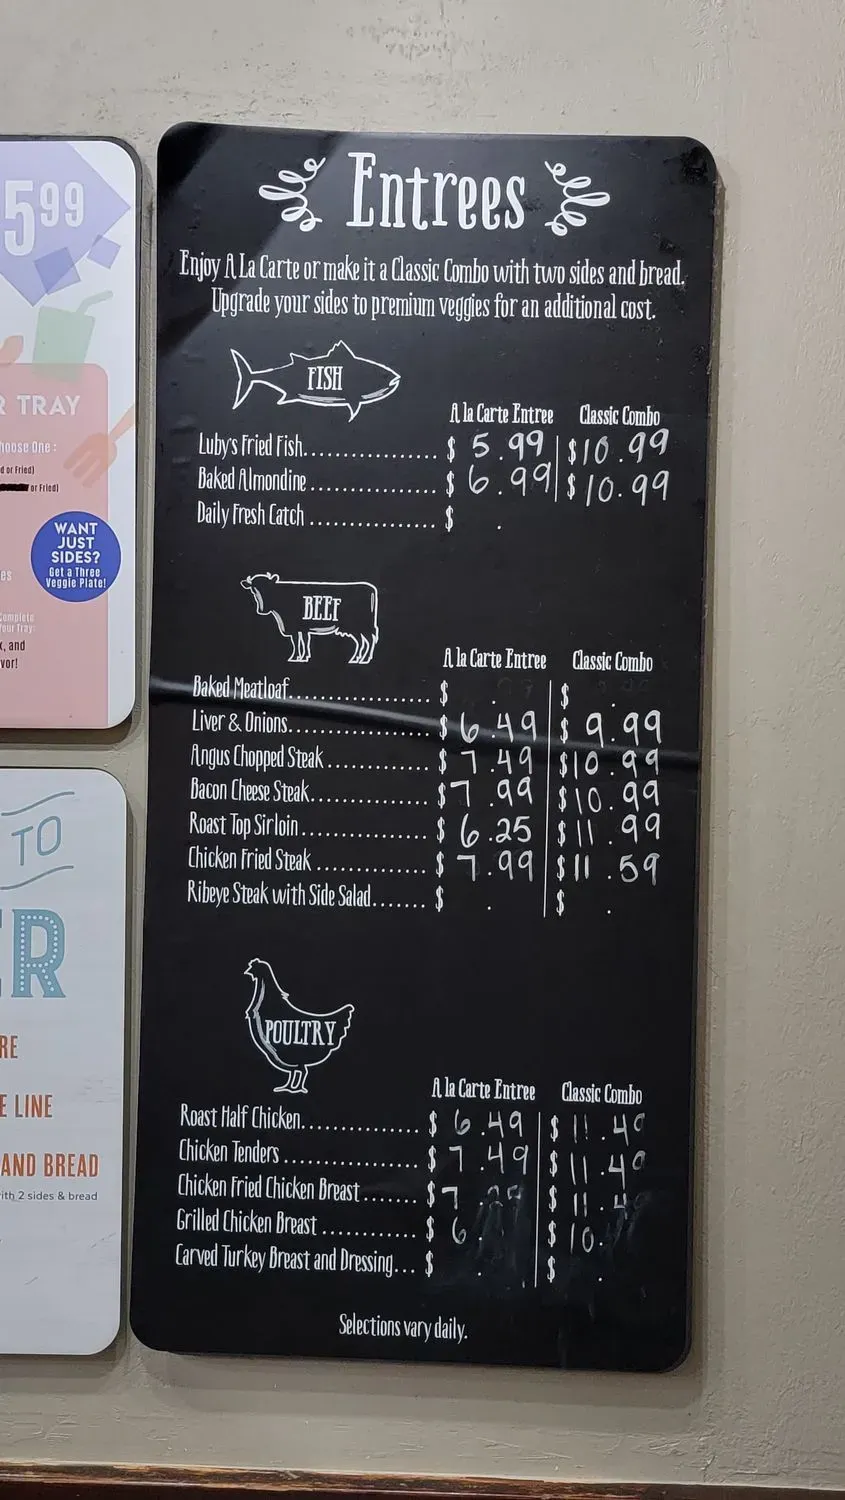 5⁹⁹
R TRAY
hoose One :
d or Fried)
or Fried)
WANT
JUST
SIDES?
Get a Three
Veggie Plate!
es
Complete
Your Tray:
, and
vor!
TO
ER
RE
E LINE
AND BREAD
ith 2 sides & bread
Entrees
Enjoy A La Carte or make it a Classic Combo with two sides and bread.
Upgrade your sides to premium veggies for an additional cost.
FISH
A la Carte Entree Classic Combo
Luby's Fried Fish.................. $ 5.99 $10.99
Baked Almondine.................. $ 6.99 $10.99
Daily Fresh Catch.................. $ .
BEEF
A la Carte Entree Classic Combo
Baked Meatloaf.................. $ . $ .
Liver & Onions.................. $ 6.49 $ 9.99
Angus Chopped Steak.................. $ 7.49 $10.99
Bacon Cheese Steak.................. $7.99 $10.99
Roast Top Sirloin.................. $ 6.25 $11.99
Chicken Fried Steak.................. $ 7.99 $11.59
Ribeye Steak with Side Salad....... $ . $ .
POULTRY
A la Carte Entree Classic Combo
Roast Half Chicken.................. $ 6.49 $ 11.49
Chicken Tenders.................. $ 7.49 $ 11.49
Chicken Fried Chicken Breast....... $7. $ 11.4
Grilled Chicken Breast............ $ 6. $ 10.
Carved Turkey Breast and Dressing... $ . $ .
Selections vary daily.